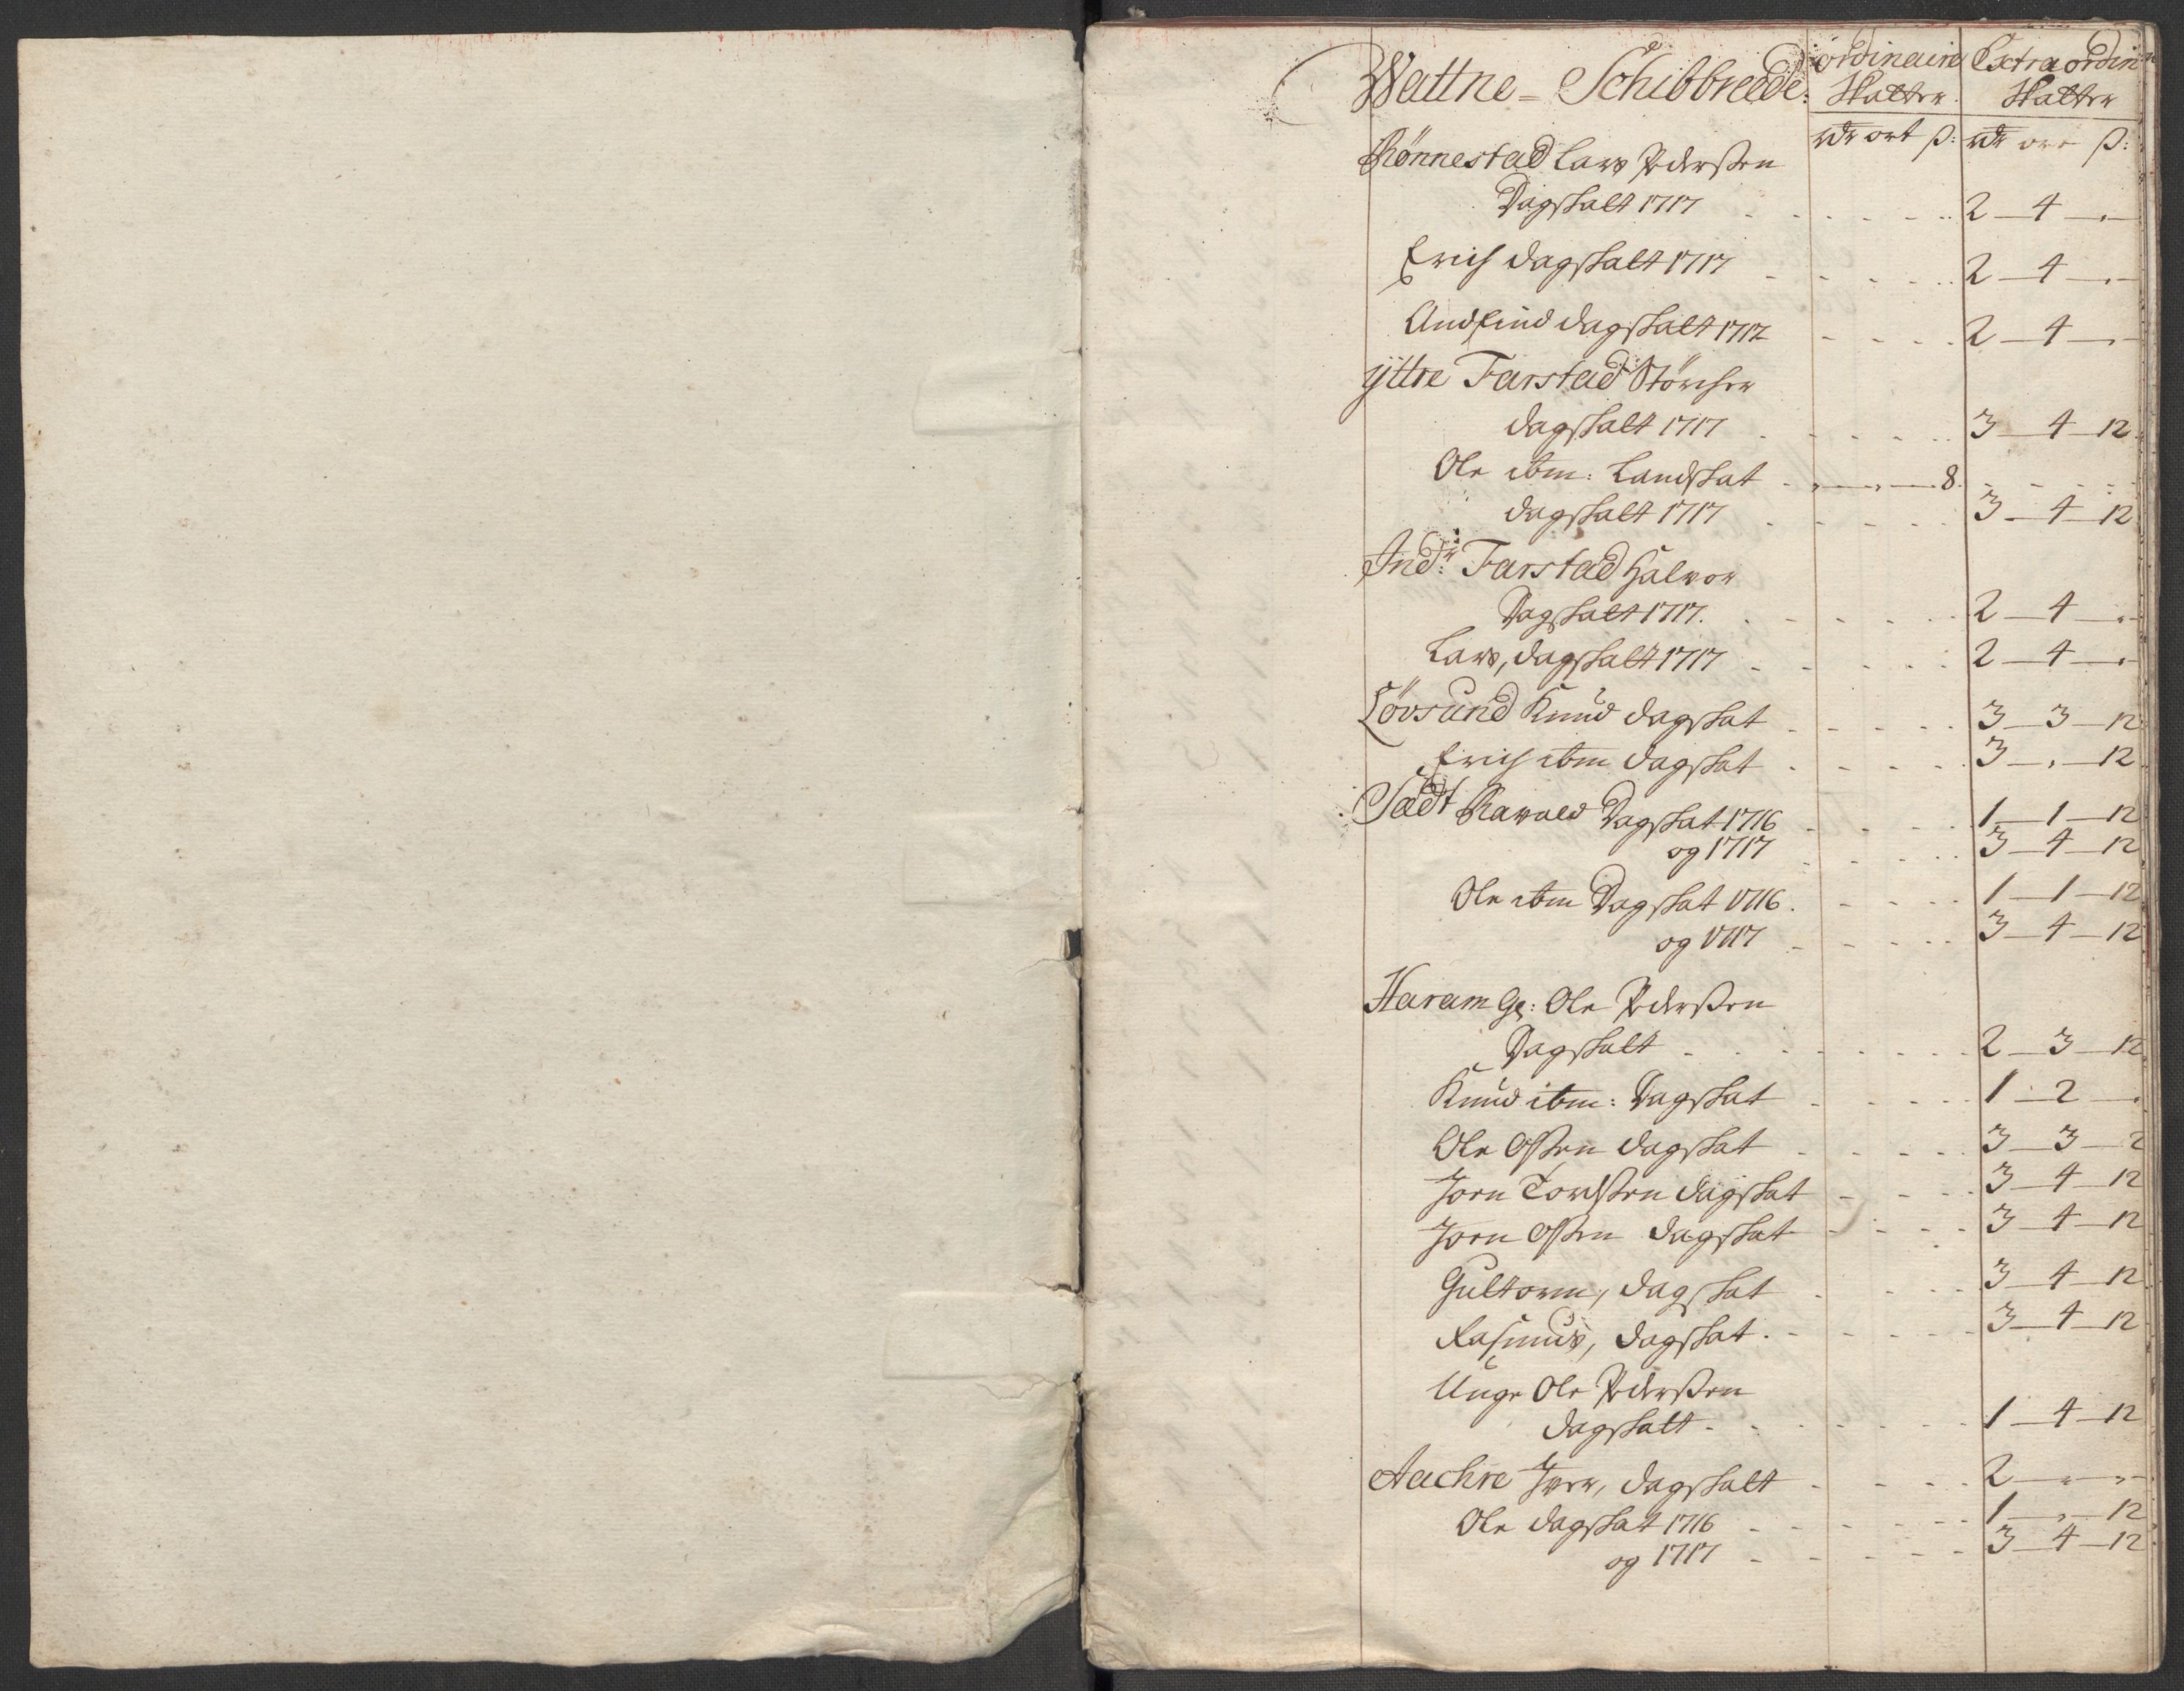 Wattne - Schibbreede: ordinaire Extraordin
Skatter. Skatter
rdr ort ß: rdr ort ß:
Rønnestad Lars Pederßen
Dagskatt 1717 2 - 4 -
Erich dagskatt 1717 2 - 4 -
Andfind dagskatt 1717 2 - 4 -
yttre Farstad Störcher
dagskatt 1717 3 - 4 - 12
Ole ibm: Landskat 8.
dagskatt 1717 3 - 4 - 12
Indr: Farstad Halvor
Dagskatt 1717. 2 - 4 -
Lars, dagskatt 1717 2 - 4 -
Lövsund Knud dagskat 3 - 3 - 12
Erich ibm dagskat 3 - . - 12
Sædt Ravald Dagskat 1716 1 - 1 - 12
og 1717 3 - 4 - 12
Ole ibm Dagskat 1716. 1 - 1 - 12
og 1717 3 - 4 - 12
Haram Ge: Ole Pederßen
Dagskatt 2 - 3 - 12
Knud ibm: Dagskat 1 - 2 -
Ole Ossen dagskat 3 - 3 - 2
Jorn Tordsen dagskat 3 - 4 - 12
Jorn Ossen dagskat 3 - 4 - 12
Gultorm, dagskat 3 - 4 - 12
Rasmus, dagskat. 3 - 4 - 12
Unge Ole Pederßen
dagskatt 1 - 4 - 12
Aachre Iver, dagskatt 2 - " - "
Ole dagskat 1716 1 - , - 12
og 1717 3 - 4 - 12